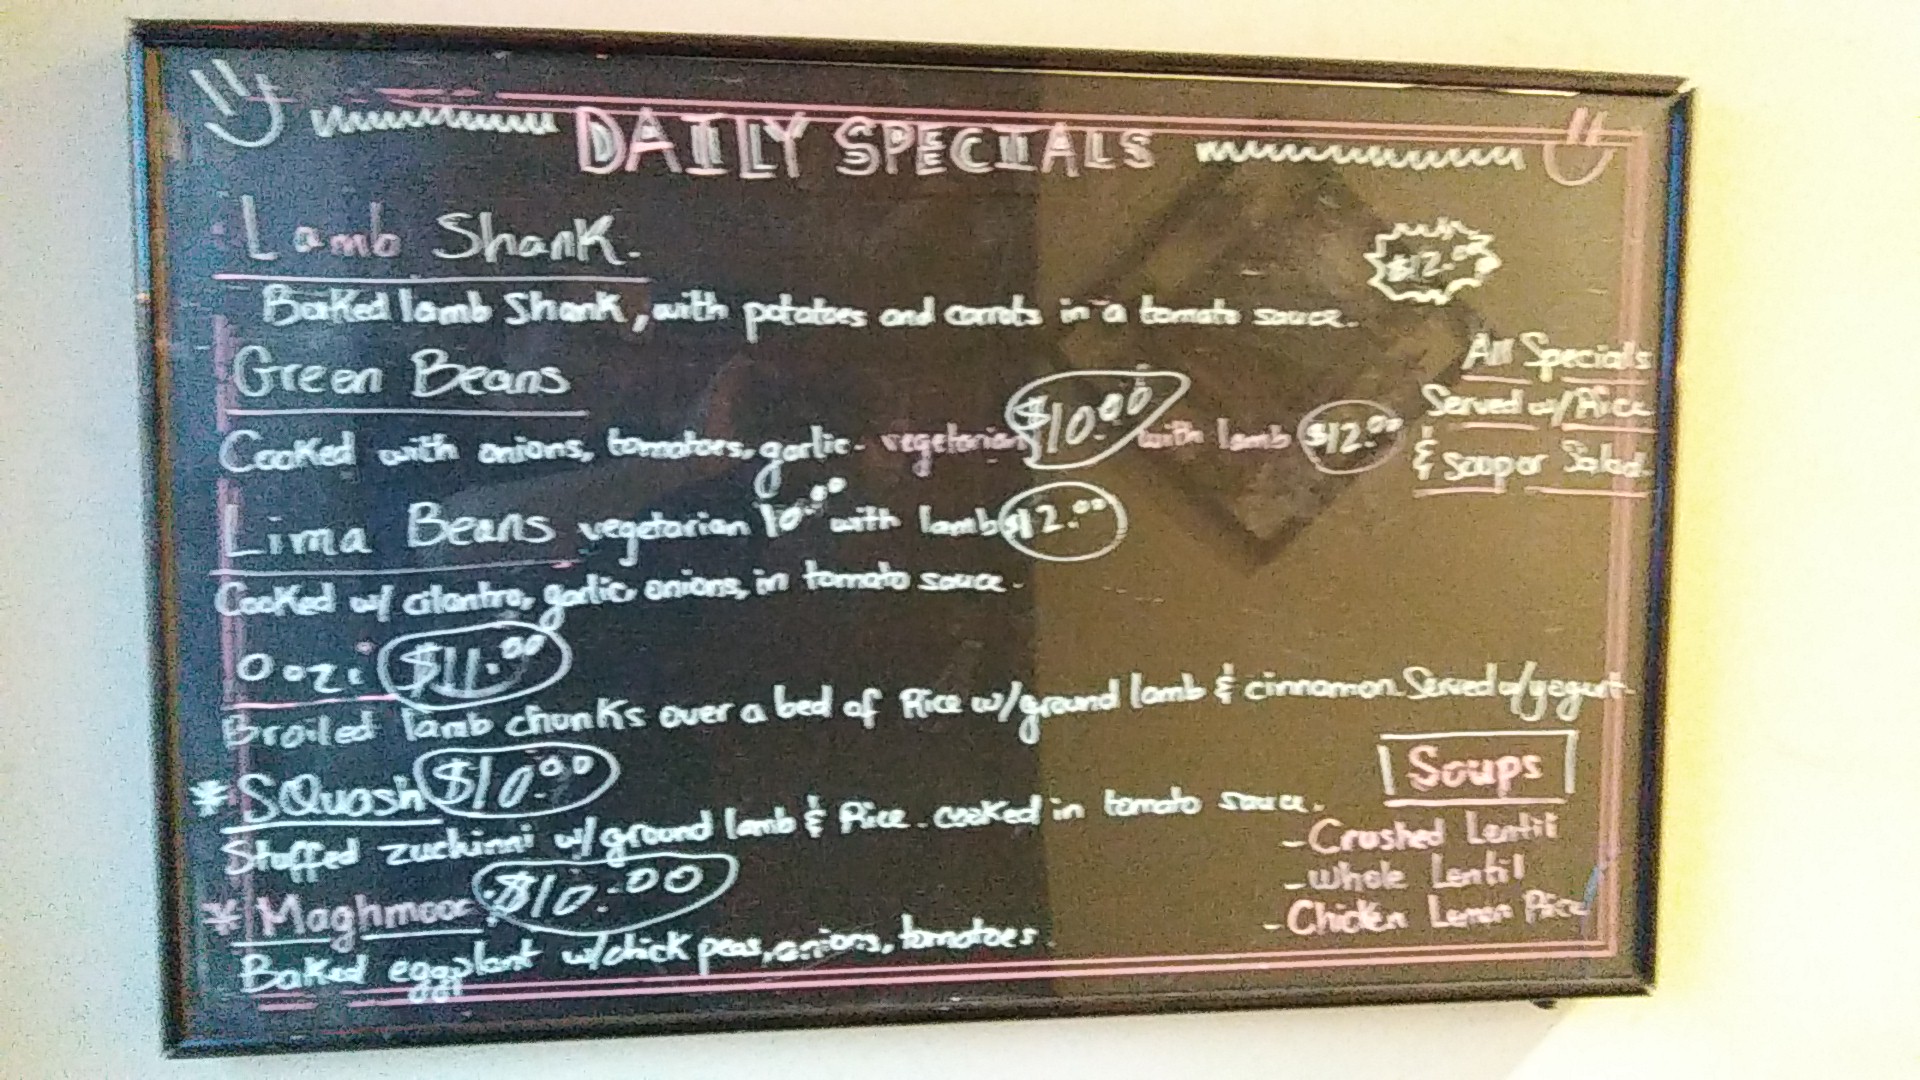 DAILY SPECIALS
Lamb Shank.
$12.00
Baked lamb Shank, with potatoes and carrots in a tomato sauce.
All Specials
Served w/Rice
& soup or Salad.
Green Beans
Cooked with onions, tomatoes, garlic. vegetarian $10.00 with lamb $12.00
Lima Beans vegetarian 10.00 with lamb $12.00
Cooked w/ cilantro, garlic, onions, in tomato sauce.
Oozi $11.00
Broiled lamb chunks over a bed of Rice w/ground lamb & cinnamon. Served w/yogurt.
* SQuash $10.00
Stuffed zuchinni w/ground lamb & Rice. cooked in tomato sauce.
* Maghmoor $10.00
Baked eggplant w/chick peas, onions, tomatoes.
Soups
- Crushed Lentil
- Whole Lentil
- Chicken Lemon Rice